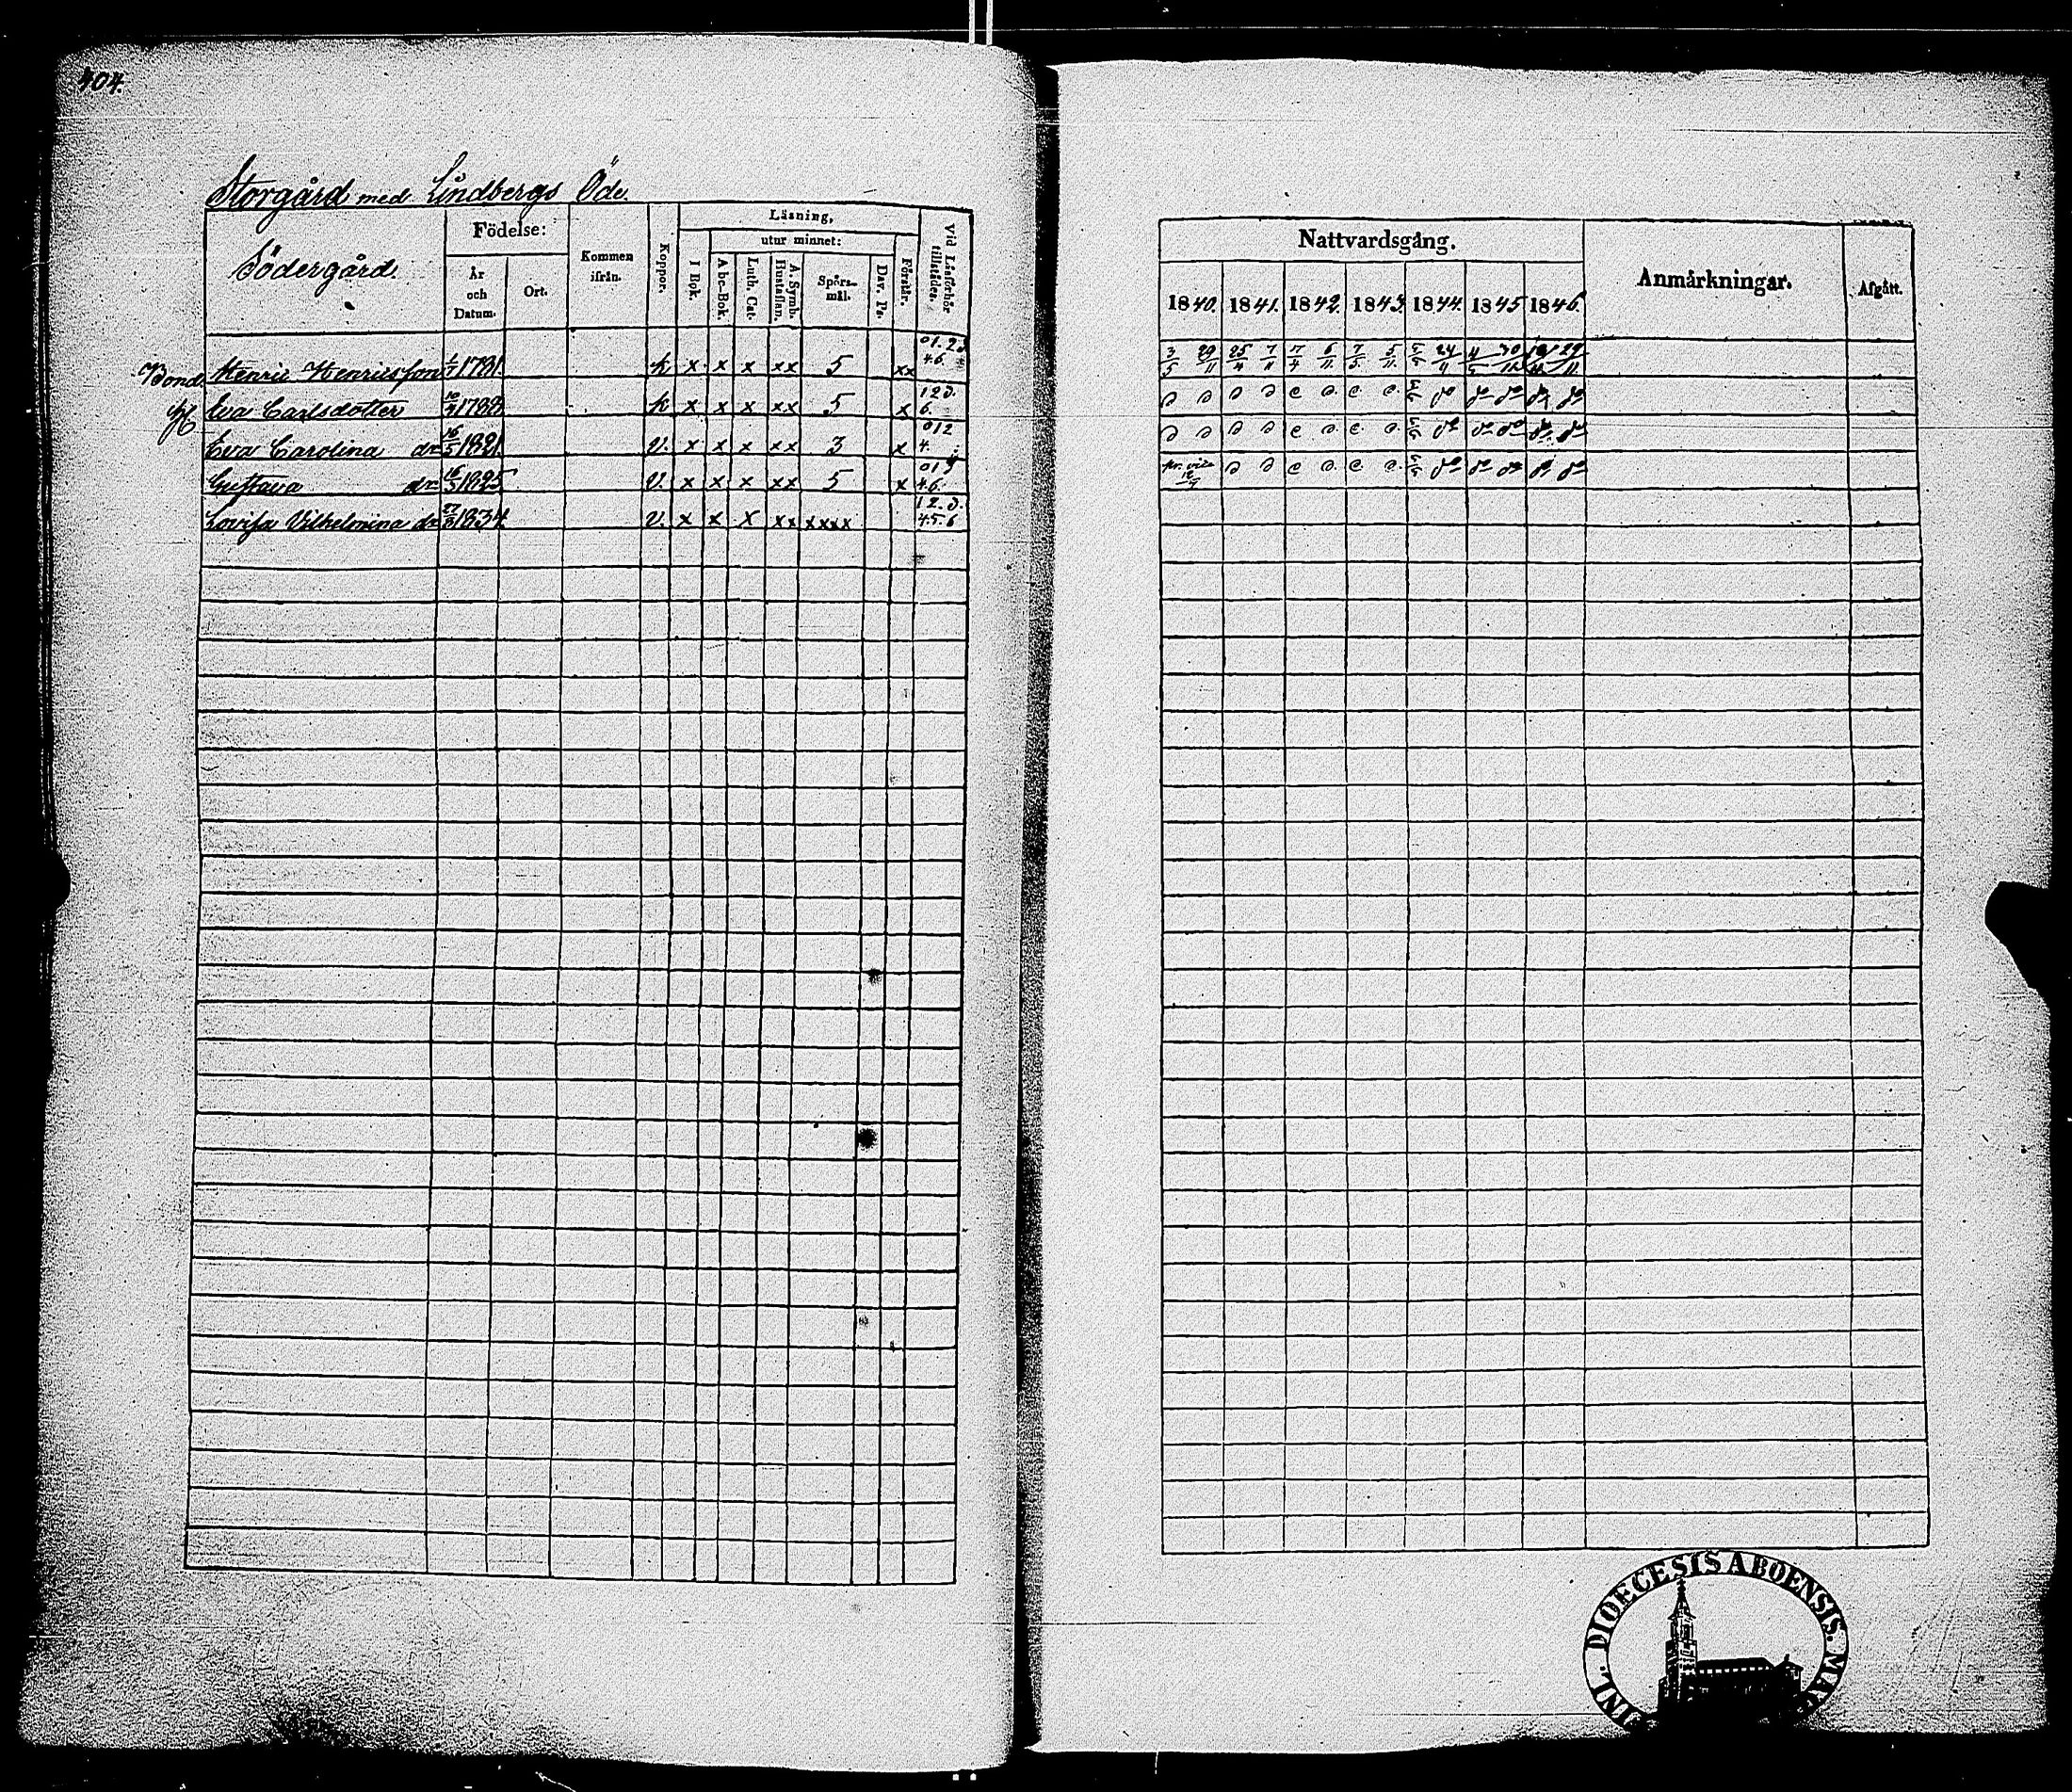 404.
Storgård med Lindbergs Öde.
Södergård
Födelse:
År och Datum.
Ort.
Kommen ifrån.
Koppor.
Läsning,
I Bok.
utur minnet:
A bc-Bok.
Luth. Cat.
A. Symb. Hustaflan.
Spörs-mål.
Dav. Ps.
Förstår.
Vid Läsförhör tillstädes.
Bond. Henric Henricsson 1/1 1781. k x x x xx 5 xx 01.2. 46.
H Eva Carlsdotter 1788 k x x x xx 5 x 123. 6.
Eva Carolina dr 1821. v. x x x xx 3 x 012 4.
Gustava dr 1825 v. x x x xx 5 x 013 46.
Lovisa Vilhelmina dr 1834. v. x x x xx xxxx 12.3. 45.6
Nattvardsgång.
1840. 1841. 1842. 1843. 1844. 1845 1846.
Anmärkningar.
Afgått.
3/5 29/11 25/4 7/11 17/4 6/11. 7/5. 5/11.
DIOECESIS ABOENSIS.